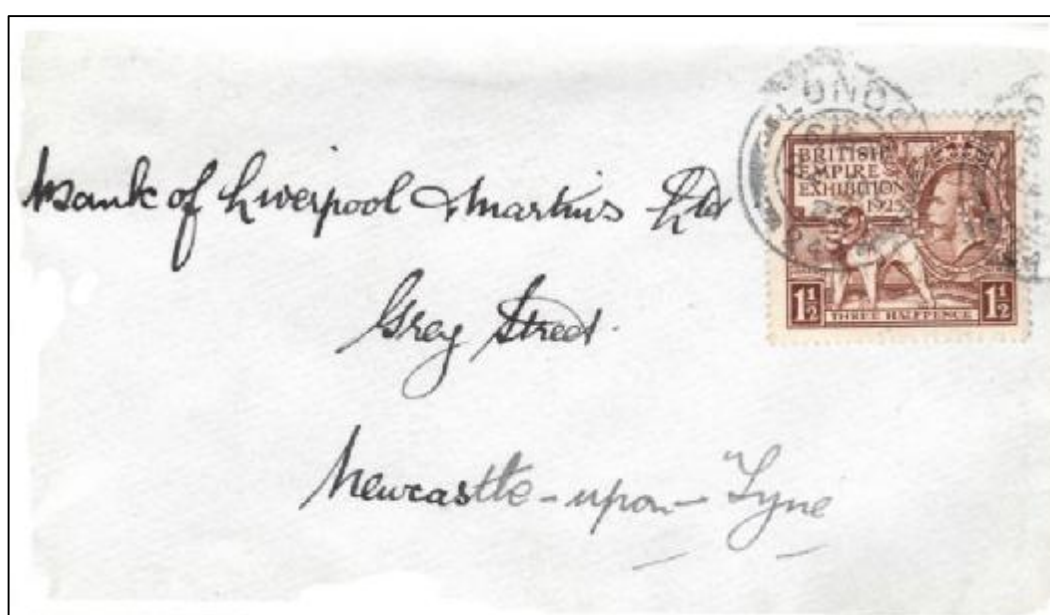 Bank of Liverpool & Martins Ltd
Grey Street.
Newcastle-upon-Tyne
LONDO
BRITISH
EMPIRE
EXHIBITION
1925
1½ THREE HALFPENCE 1½